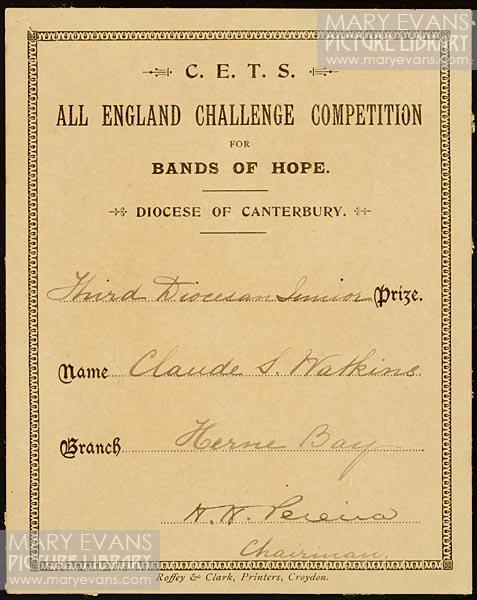 MARY EVANS
PICTURE LIBRARY
www.maryevans.com
C. E. T. S.
ALL ENGLAND CHALLENGE COMPETITION
FOR
BANDS OF HOPE.
DIOCESE OF CANTERBURY.
Third Diocesan Junior Prize.
Name Claude S. Watkins
Branch Herne Bay
H. H. Pereira
Chairman.
MARY EVANS
PICTURE LIBRARY
www.maryevans.com
Roffey & Clark, Printers, Croydon.